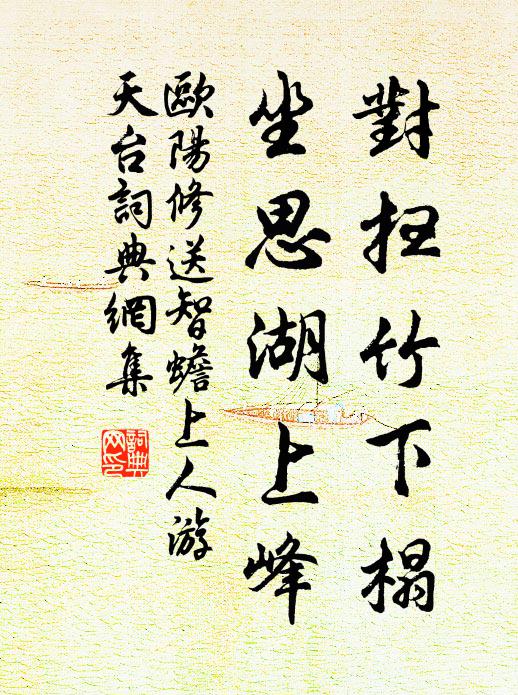 對扫竹下榻
坐思湖上峰
歐陽修送智蟾上人游
天台詞典網集
詞典网印